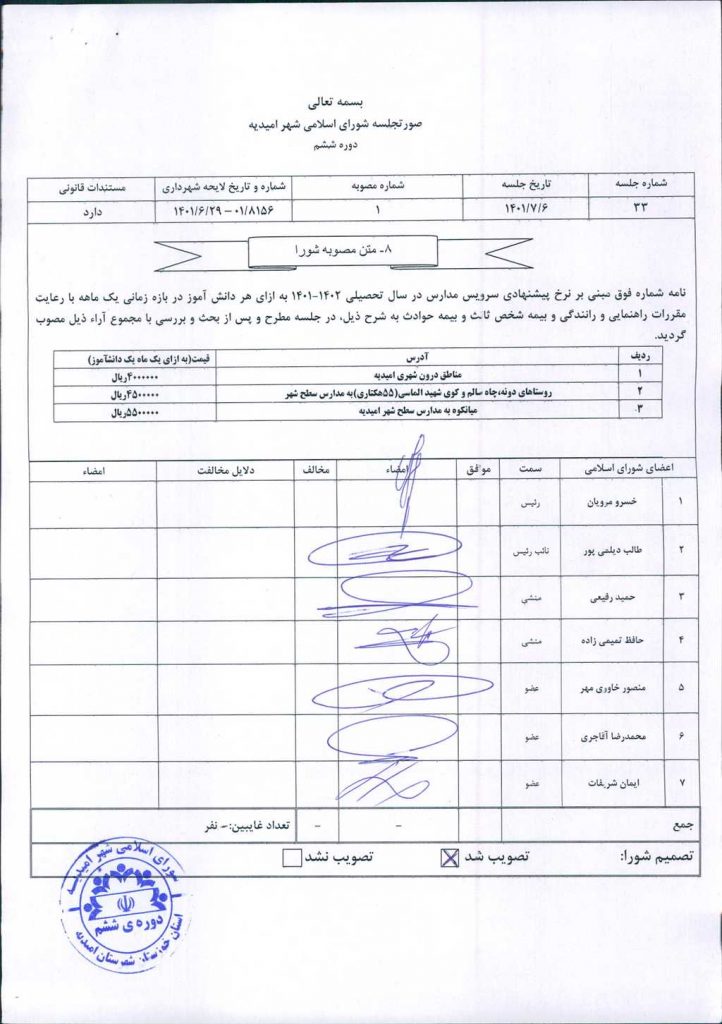 بسمه تعالی
صورتجلسه شورای اسلامی شهر امیدیه
دوره ششم
شماره جلسه تاریخ جلسه شماره مصوبه شماره و تاریخ لایحه شهرداری مستندات قانونی
۳۳ ۱۴۰۱/۷/۶ ۱ ۰۱/۸۱۵۶ – ۱۴۰۱/۶/۲۹ دارد
۸- متن مصوبه شورا
نامه شماره فوق مبنی بر نرخ پیشنهادی سرویس مدارس در سال تحصیلی ۱۴۰۲-۱۴۰۱ به ازای هر دانش آموز در بازه زمانی یک ماهه با رعایت
مقررات راهنمایی و رانندگی و بیمه شخص ثالث و بیمه حوادث به شرح ذیل، در جلسه مطرح و پس از بحث و بررسی با مجموع آراء ذیل مصوب
گردید.
ردیف آدرس قیمت(به ازای یک ماه یک دانشآموز)
۱ مناطق درون شهری امیدیه ۴۰۰۰۰۰۰ریال
۲ روستاهای دونه،چاه سالم و کوی شهید الماسی(۵۵هکتاری)به مدارس سطح شهر ۴۵۰۰۰۰۰ریال
۳ میانکوه به مدارس سطح شهر امیدیه ۵۵۰۰۰۰۰ریال
اعضای شورای اسلامی سمت موافق امضاء مخالف دلایل مخالفت امضاء
۱ خسرو مرویان رئیس
۲ طالب دیلمی پور نائب رئیس
۳ حمید رفیعی منشی
۴ حافظ تمیمی زاده منشی
۵ منصور خاوری مهر عضو
۶ محمدرضا آقاجری عضو
۷ ایمان شریفات عضو
جمع – – تعداد غایبین:– نفر
تصمیم شورا: تصویب شد تصویب نشد
شورای اسلامی شهر امیدیه
دوره ی ششم
استان خوزستان شهرستان امیدیه